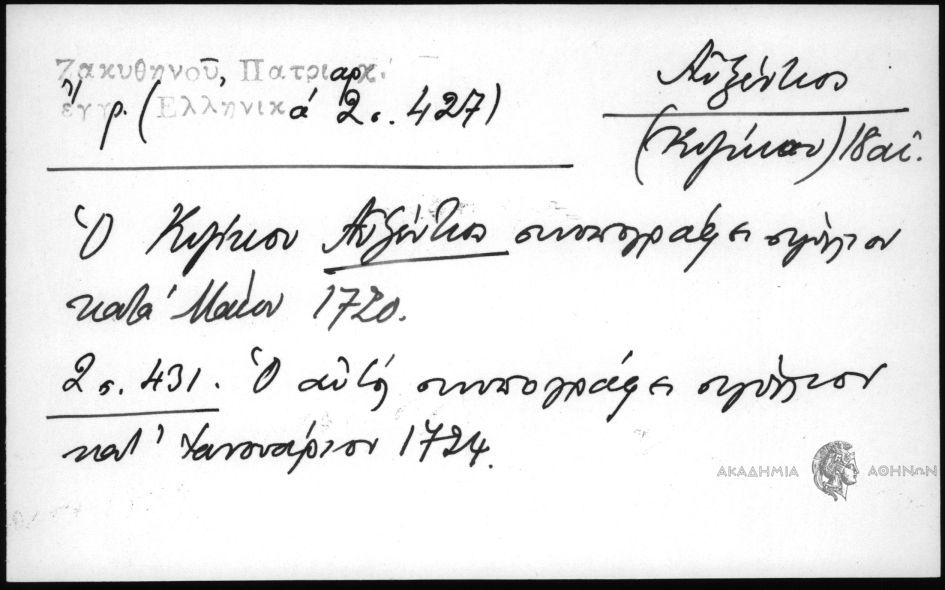 Ζακυθηνοῦ, Πατριαρχ.
ἔγγρ. (Ἑλληνικά 2ς. 427)
Αὐξέντιος
(Κυζίκου) 18 αἰ.
Ὁ Κυζίκου Αὐξέντιος συνυπογράφει σιγίλλιον
κατά Μάιον 1720.
2ς. 431. Ὁ αὐτός συνυπογράφει σιγίλλιον
κατ' Ἰανουάριον 1724.
ΑΚΑΔΗΜΙΑ ΑΘΗΝΩΝ